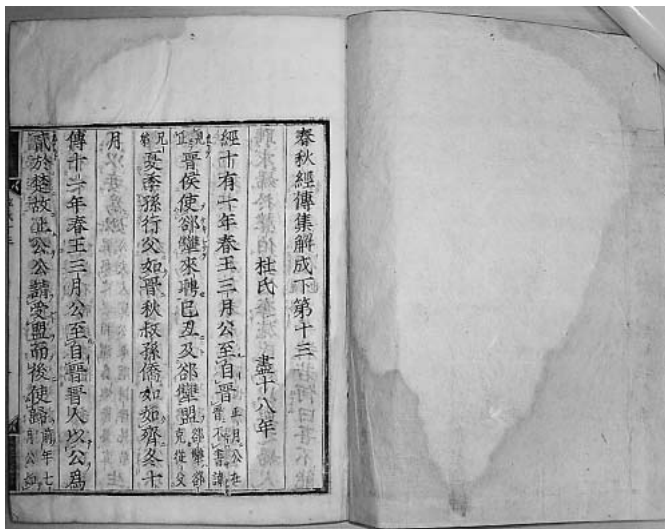 春秋經傳集解成下第十三
杜氏 盡十八年
經十有一年春王三月公至自晉正月公在晉不書諱
晉侯使郤犨來聘己丑及郤犨盟郤犨郤克從父
夏季孫行父如晉秋叔孫僑如如齊冬十
月
傳十一年春王三月公至自晉晉人以公爲
貳於楚故止公公請受盟而後使歸前年七月公如